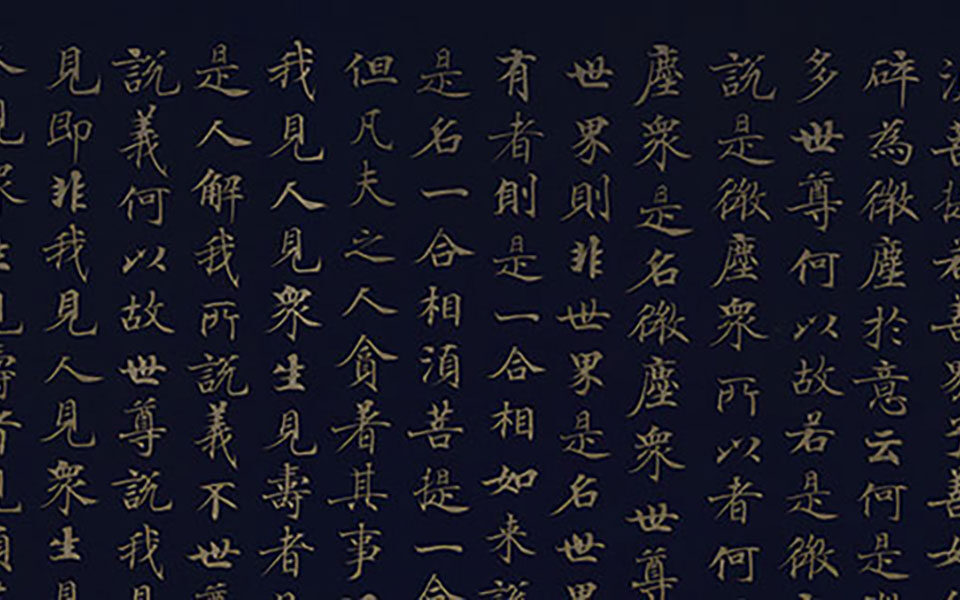 若善男子善女
碎為微塵於意云何是微
多世尊何以故若是微
說是微塵衆所以者何
塵衆是名微塵衆世尊
世界則非世界是名世界
有者則是一合相如来說
是名一合相須菩提一合
但凡夫之人貪著其事
我見人見衆生見壽者見
是人解我所說義不世尊
說義何以故世尊說我見
見即非我見人見衆生見
人見衆生見壽者見須